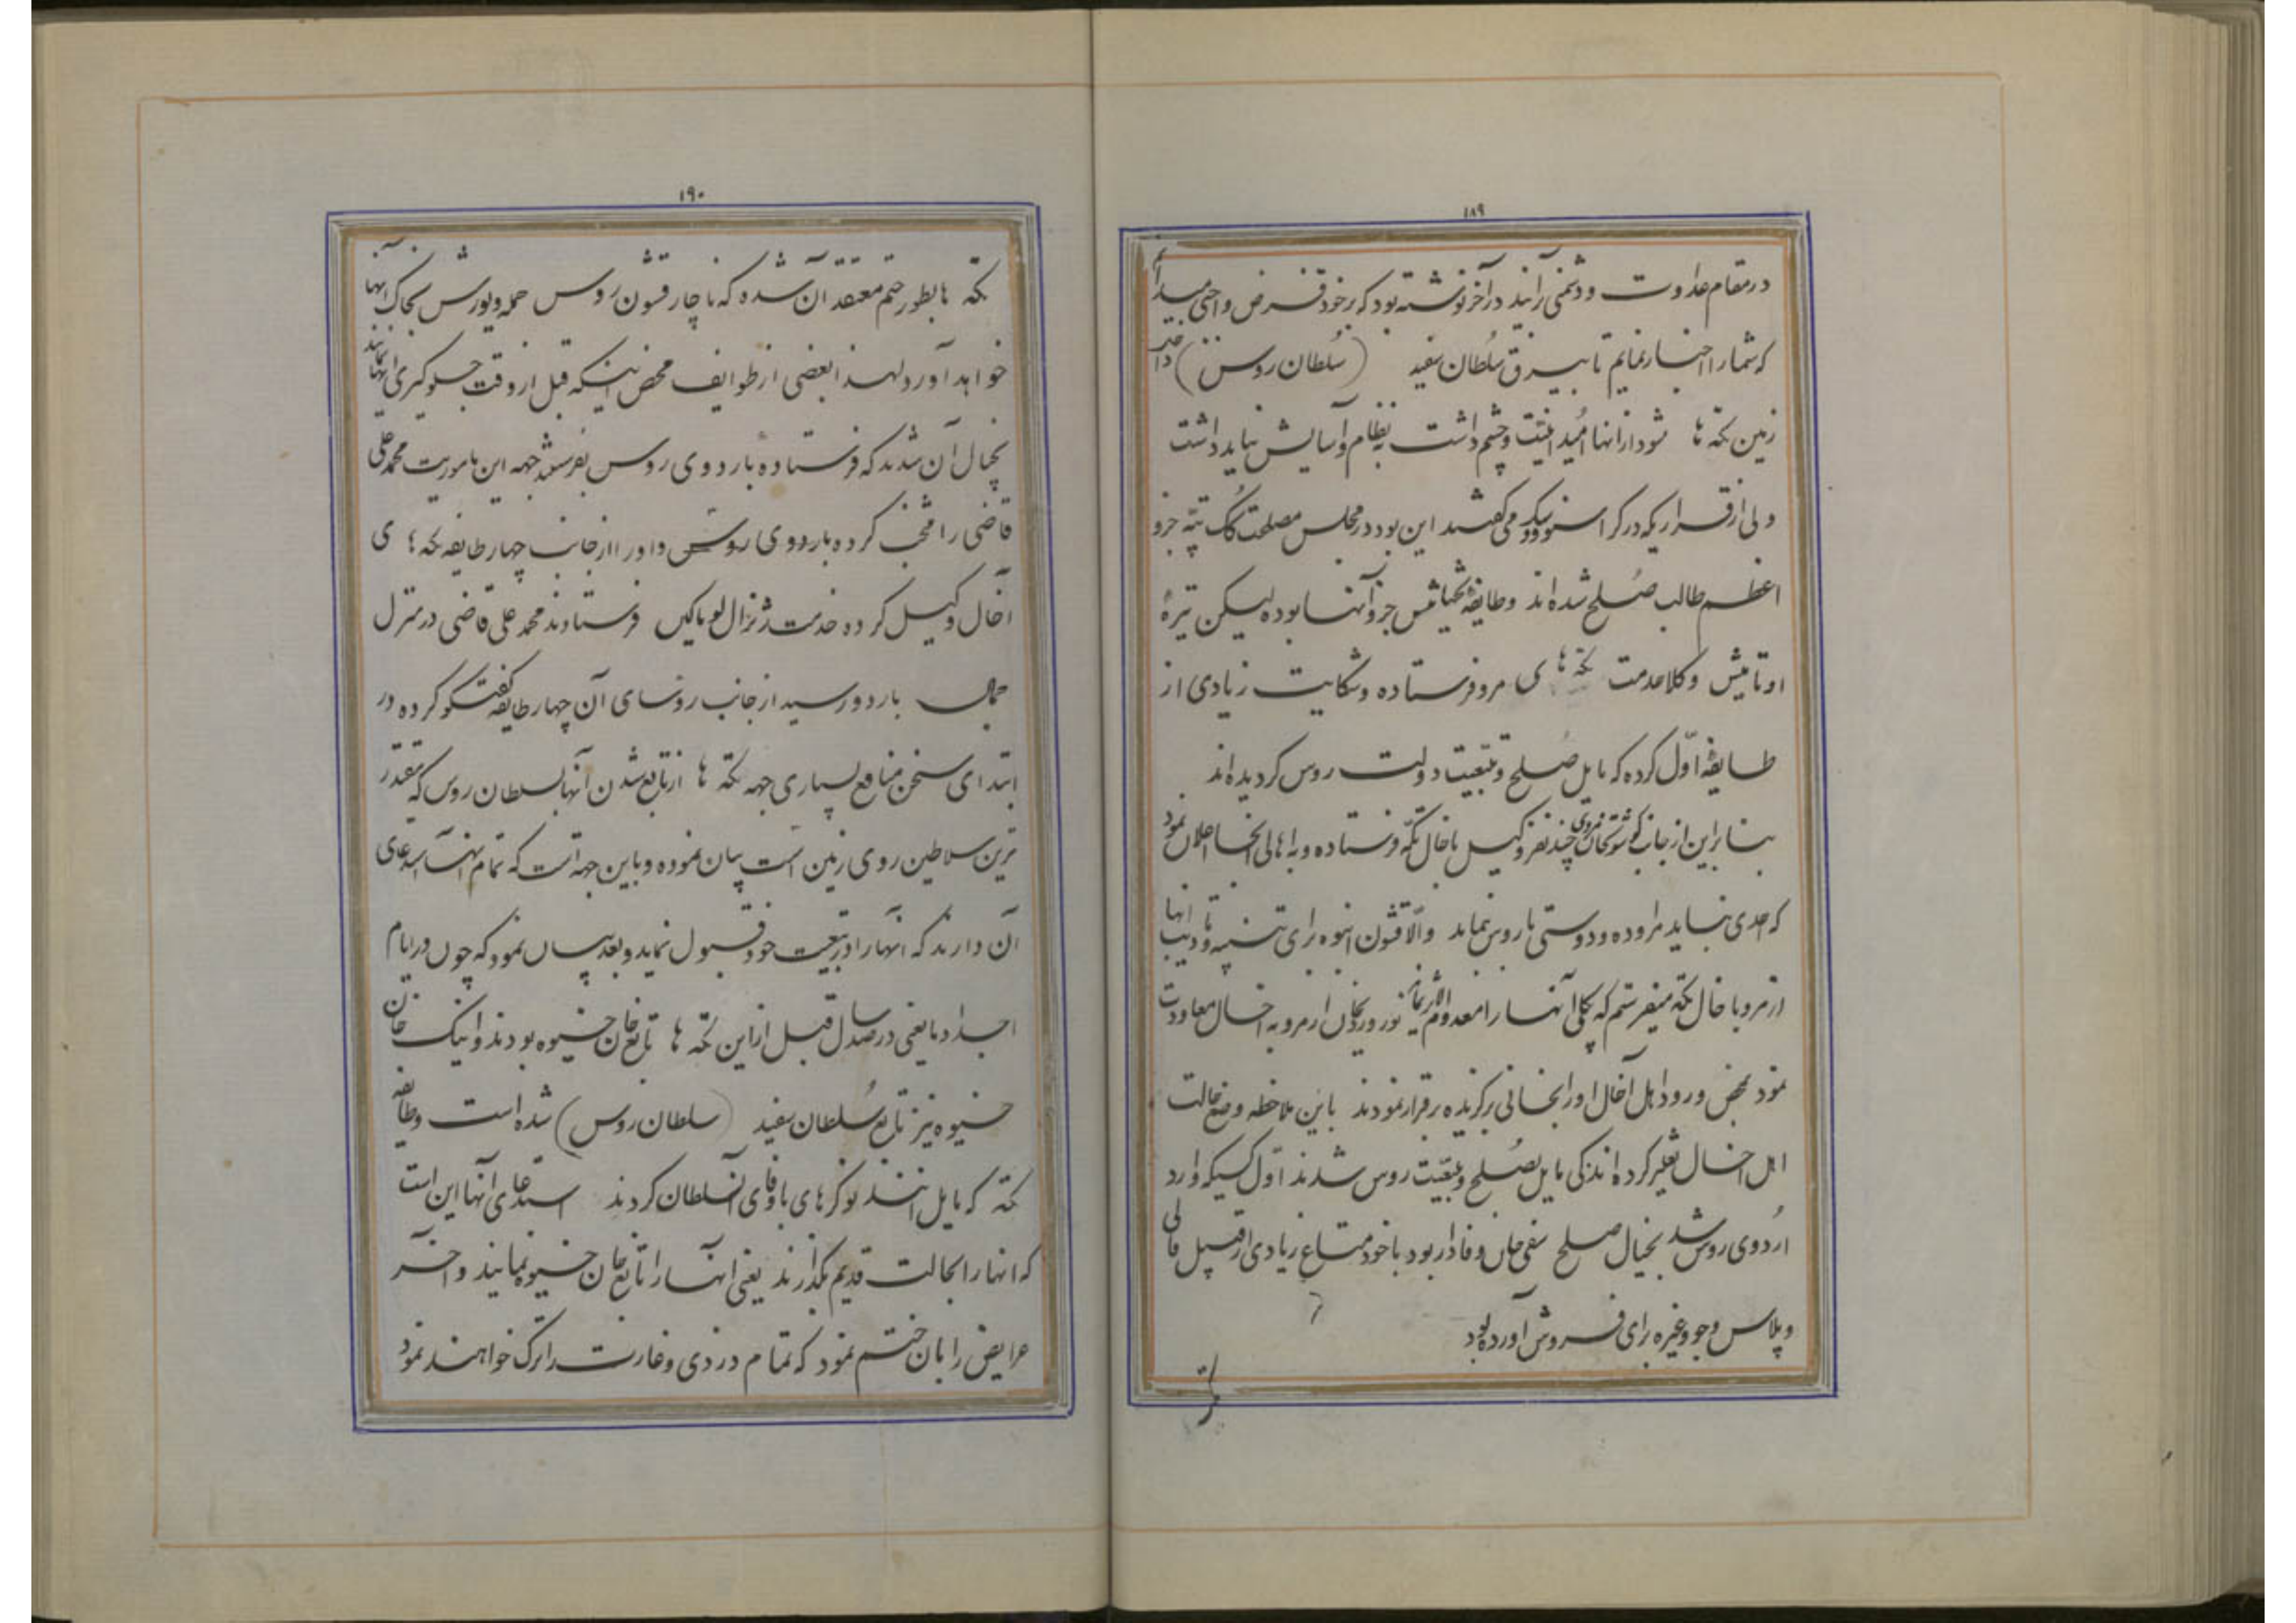 ۱۸۹
در مقام عداوت و دشمنی رآیند در آخر نوشته بود که بر خود فرض و اجبی میدانم
که شما را اخبار نمایم تا بیرق سُلطان سفید (سُلطان روس) داخل
زمین تکه ها نشود از انها امُید امنیّت و چشم داشت به نظام و آسایش نباید داشت
ولی از قراریکه در کراسنوودسک می گفتند این بود در مجلس مصلحت کُک تپّه جزو
اعظم طالب صُلح شده اند و طایفهٔ بخشایش جزو آنها بوده لیکن تیرهٔ
اوتامیش وکلا خدمت تکّه های مرو فرستاده و شکایت زیادی از
طایفهٔ اوّل کرده که مایل صُلح و تبعیّت دولت روس گردیده اند
بنابراین از جانب قوشوتخان مروی چند نفر وکیل باخال تکّه فرستاده و به اهالی انجا اعلان نمود
که احدی نباید مراوده و دوستی با روس نماید والّا قشون انبوه برای تنبیه و تادیب انها
از مرو باخال تکه میفرستم که بکلی آنها را معدوم الاثر نمایم نور وردیخان از مرو به اخال معاودت
نمود بمحض ورود اهل آخال او را بخانی برگزیده برقرار نمودند باین ملاحظه وضع حالت
اهل اخال تغییر کرده اندکی مایل بصُلح و تبعیّت روس شدند اوّل کسیکه وارد
اُردوی روس شد بخیال صلح صفی خان وفادار بود با خود متاع زیادی از قبیل قالی
و پلاس و جو و غیره برای فروش آورده بود
۱۹۰
تکه ها بطور حتم معتقد آن شده که ناچار قشون روس حمله و یورش بخاک آنها
خواهد آورد لهذا بعضی از طوایف محض اینکه قبل از وقت جلوگیری از انها نمایند
بخیال آن شدند که فرستاده باردوی روس بفرستند جهه این ماموریت محمد علی
قاضی را منتخب کرده باردوی روس و او را از جانب چهار طایفه تکه ی
آخال وکیل کرده خدمت ژنرال لوماکین فرستادند محمد علی قاضی در منزل
باردو رسید از جانب روسای آن چهار طایفه گفتگو کرده در
ابتدای سخن منافع بسیاری جهه تکّه ها از تابع شدن آنها بسلطان روس که مقتدر
ترین سلاطین روی زمین است بیان نموده و باین جهه است که تمام آنها استدعای
آن دارند که انها را در تبعیت خود قبول نماید و بعد بیان نمود که چون در ایام
اجداد ما یعنی در صد سال قبل از این تکّه ها تابع خان خیوه بودند و اینک خان
خیوه نیز تابع سُلطان سفید (سلطان روس) شده است و طایفه
تکه که مایل اند نوکرهای با وفای آن سلطان گردند استدعای آنها این است
که انها را بحالت قدیم بگذارند یعنی انها را تابع خان خیوه نمایند و آخر
عرایض را بان ختم نمود که تمام دزدی و غارت را ترک خواهند نمود